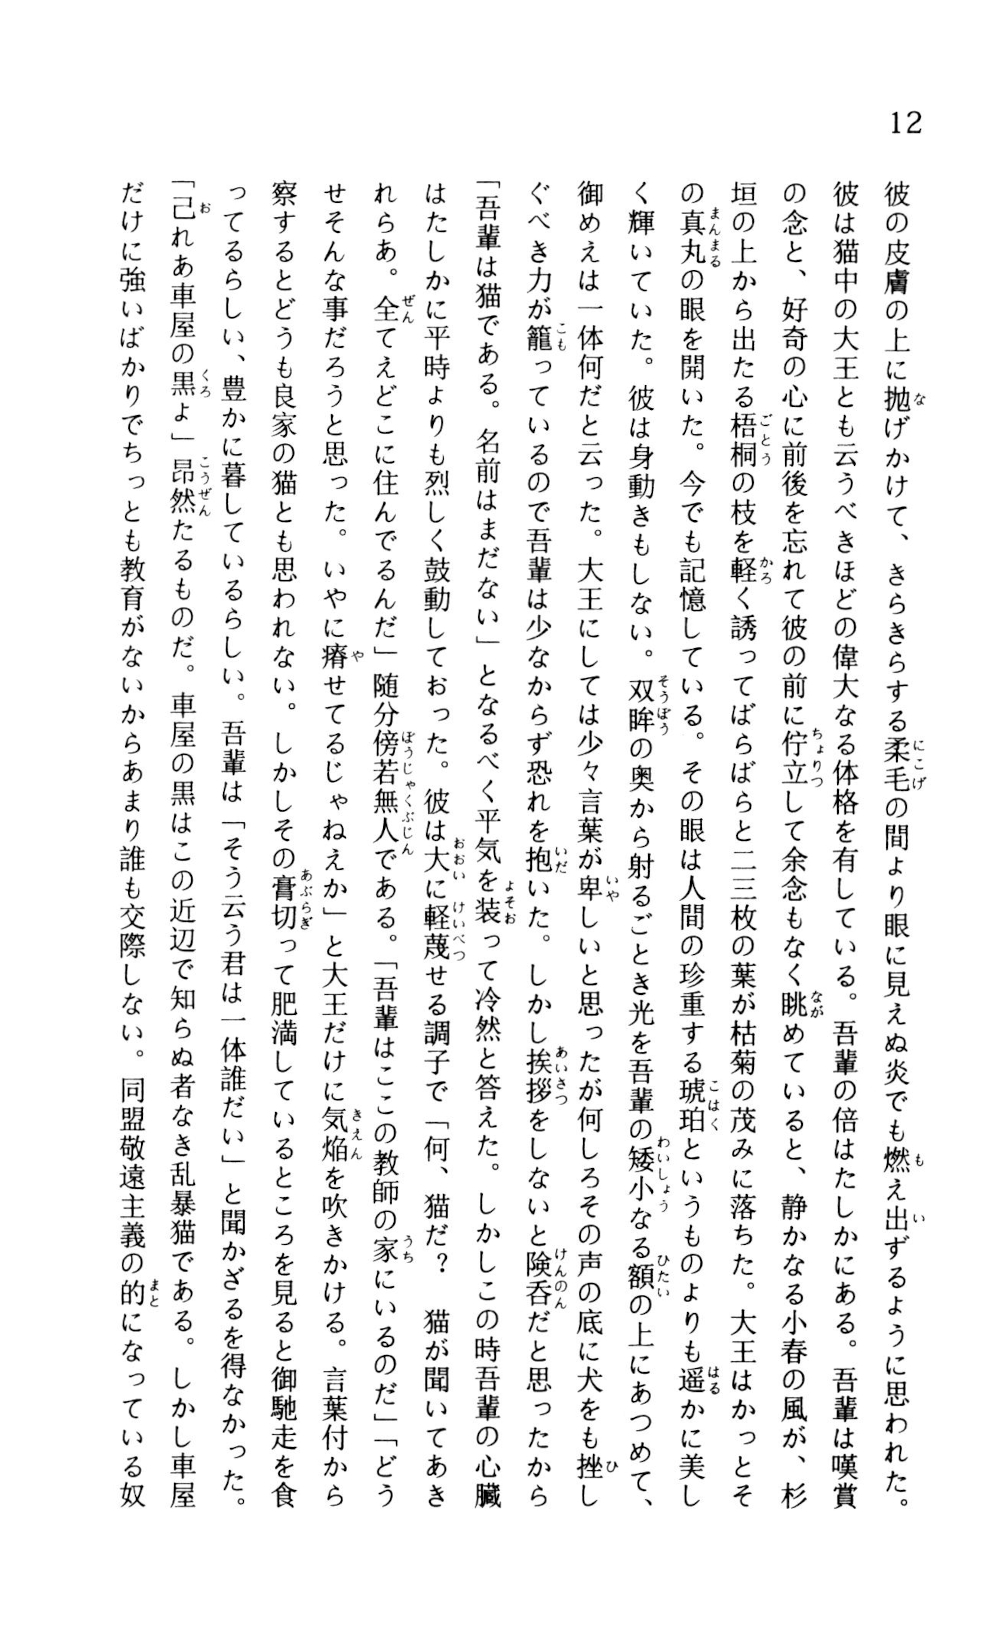 12
彼の皮膚の上に抛げかけて、きらきらする柔毛の間より眼に見えぬ炎でも燃え出ずるように思われた。
彼は猫中の大王とも云うべきほどの偉大なる体格を有している。吾輩の倍はたしかにある。吾輩は嘆賞
の念と、好奇の心に前後を忘れて彼の前に佇立して余念もなく眺めていると、静かなる小春の風が、杉
垣の上から出たる梧桐の枝を軽く誘ってばらばらと二三枚の葉が枯菊の茂みに落ちた。大王はかっとそ
の真丸の眼を開いた。今でも記憶している。その眼は人間の珍重する琥珀というものよりも遥かに美し
く輝いていた。彼は身動きもしない。双眸の奥から射るごとき光を吾輩の矮小なる額の上にあつめて、
御めえは一体何だと云った。大王にしては少々言葉が卑しいと思ったが何しろその声の底に犬をも挫し
ぐべき力が籠っているので吾輩は少なからず恐れを抱いた。しかし挨拶をしないと険呑だと思ったから
「吾輩は猫である。名前はまだない」となるべく平気を装って冷然と答えた。しかしこの時吾輩の心臓
はたしかに平時よりも烈しく鼓動しておった。彼は大に軽蔑せる調子で「何、猫だ？　猫が聞いてあき
れらあ。全てえどこに住んでるんだ」随分傍若無人である。「吾輩はここの教師の家にいるのだ」「どう
せそんな事だろうと思った。いやに瘠せてるじゃねえか」と大王だけに気焔を吹きかける。言葉付から
察するとどうも良家の猫とも思われない。しかしその膏切って肥満しているところを見ると御馳走を食
ってるらしい、豊かに暮しているらしい。吾輩は「そう云う君は一体誰だい」と聞かざるを得なかった。
「己れあ車屋の黒よ」昂然たるものだ。車屋の黒はこの近辺で知らぬ者なき乱暴猫である。しかし車屋
だけに強いばかりでちっとも教育がないからあまり誰も交際しない。同盟敬遠主義の的になっている奴